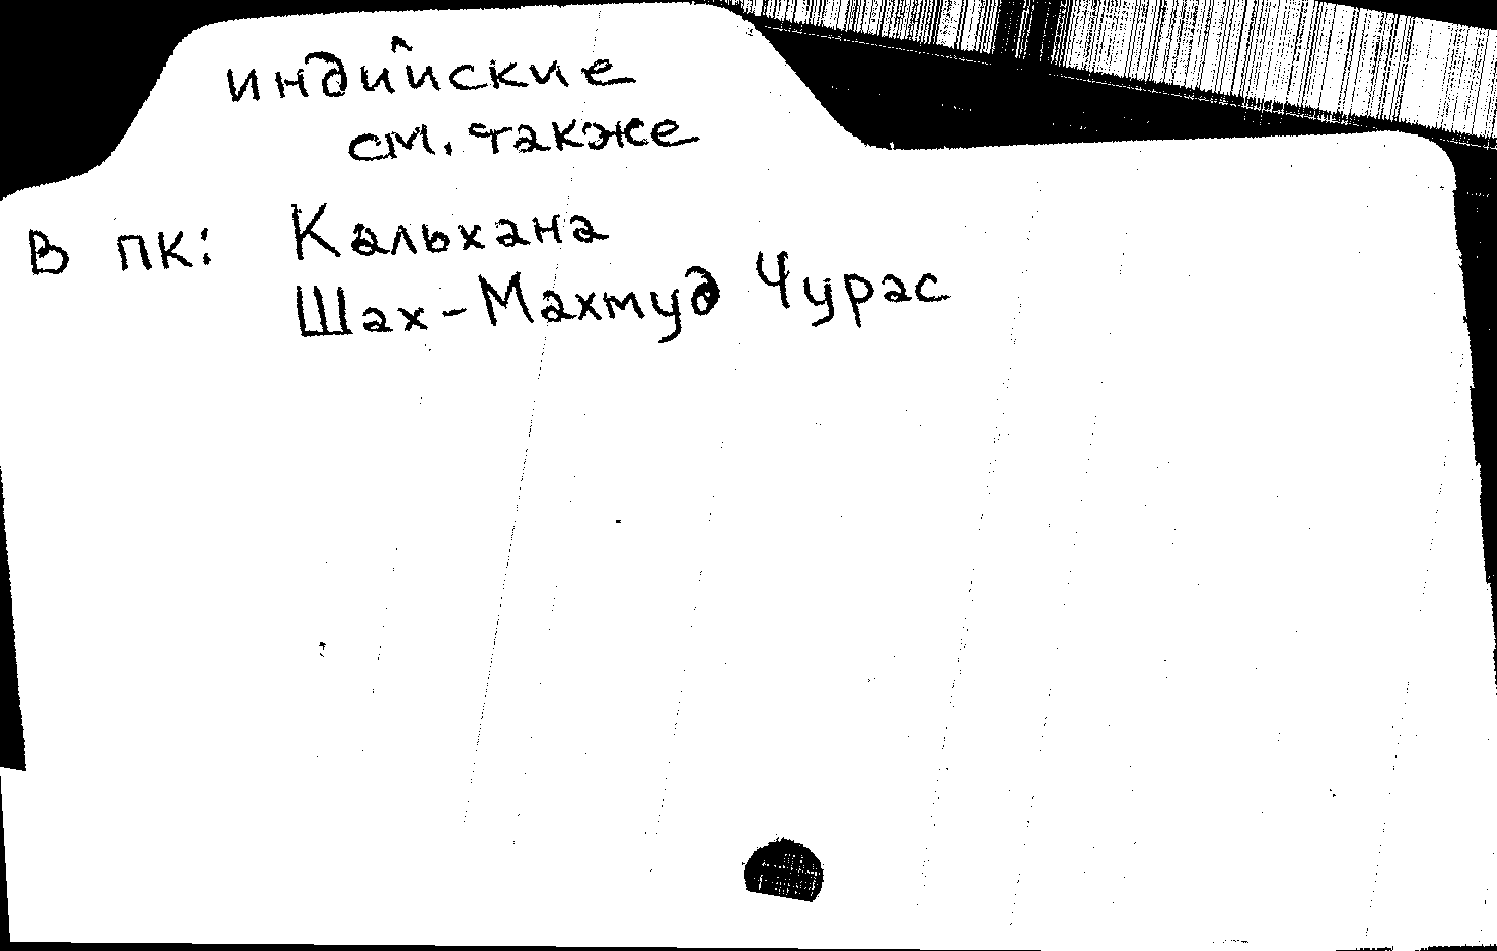 индийские
см. также
В ПК: Кальхана
Шах-Махмуд Чурас